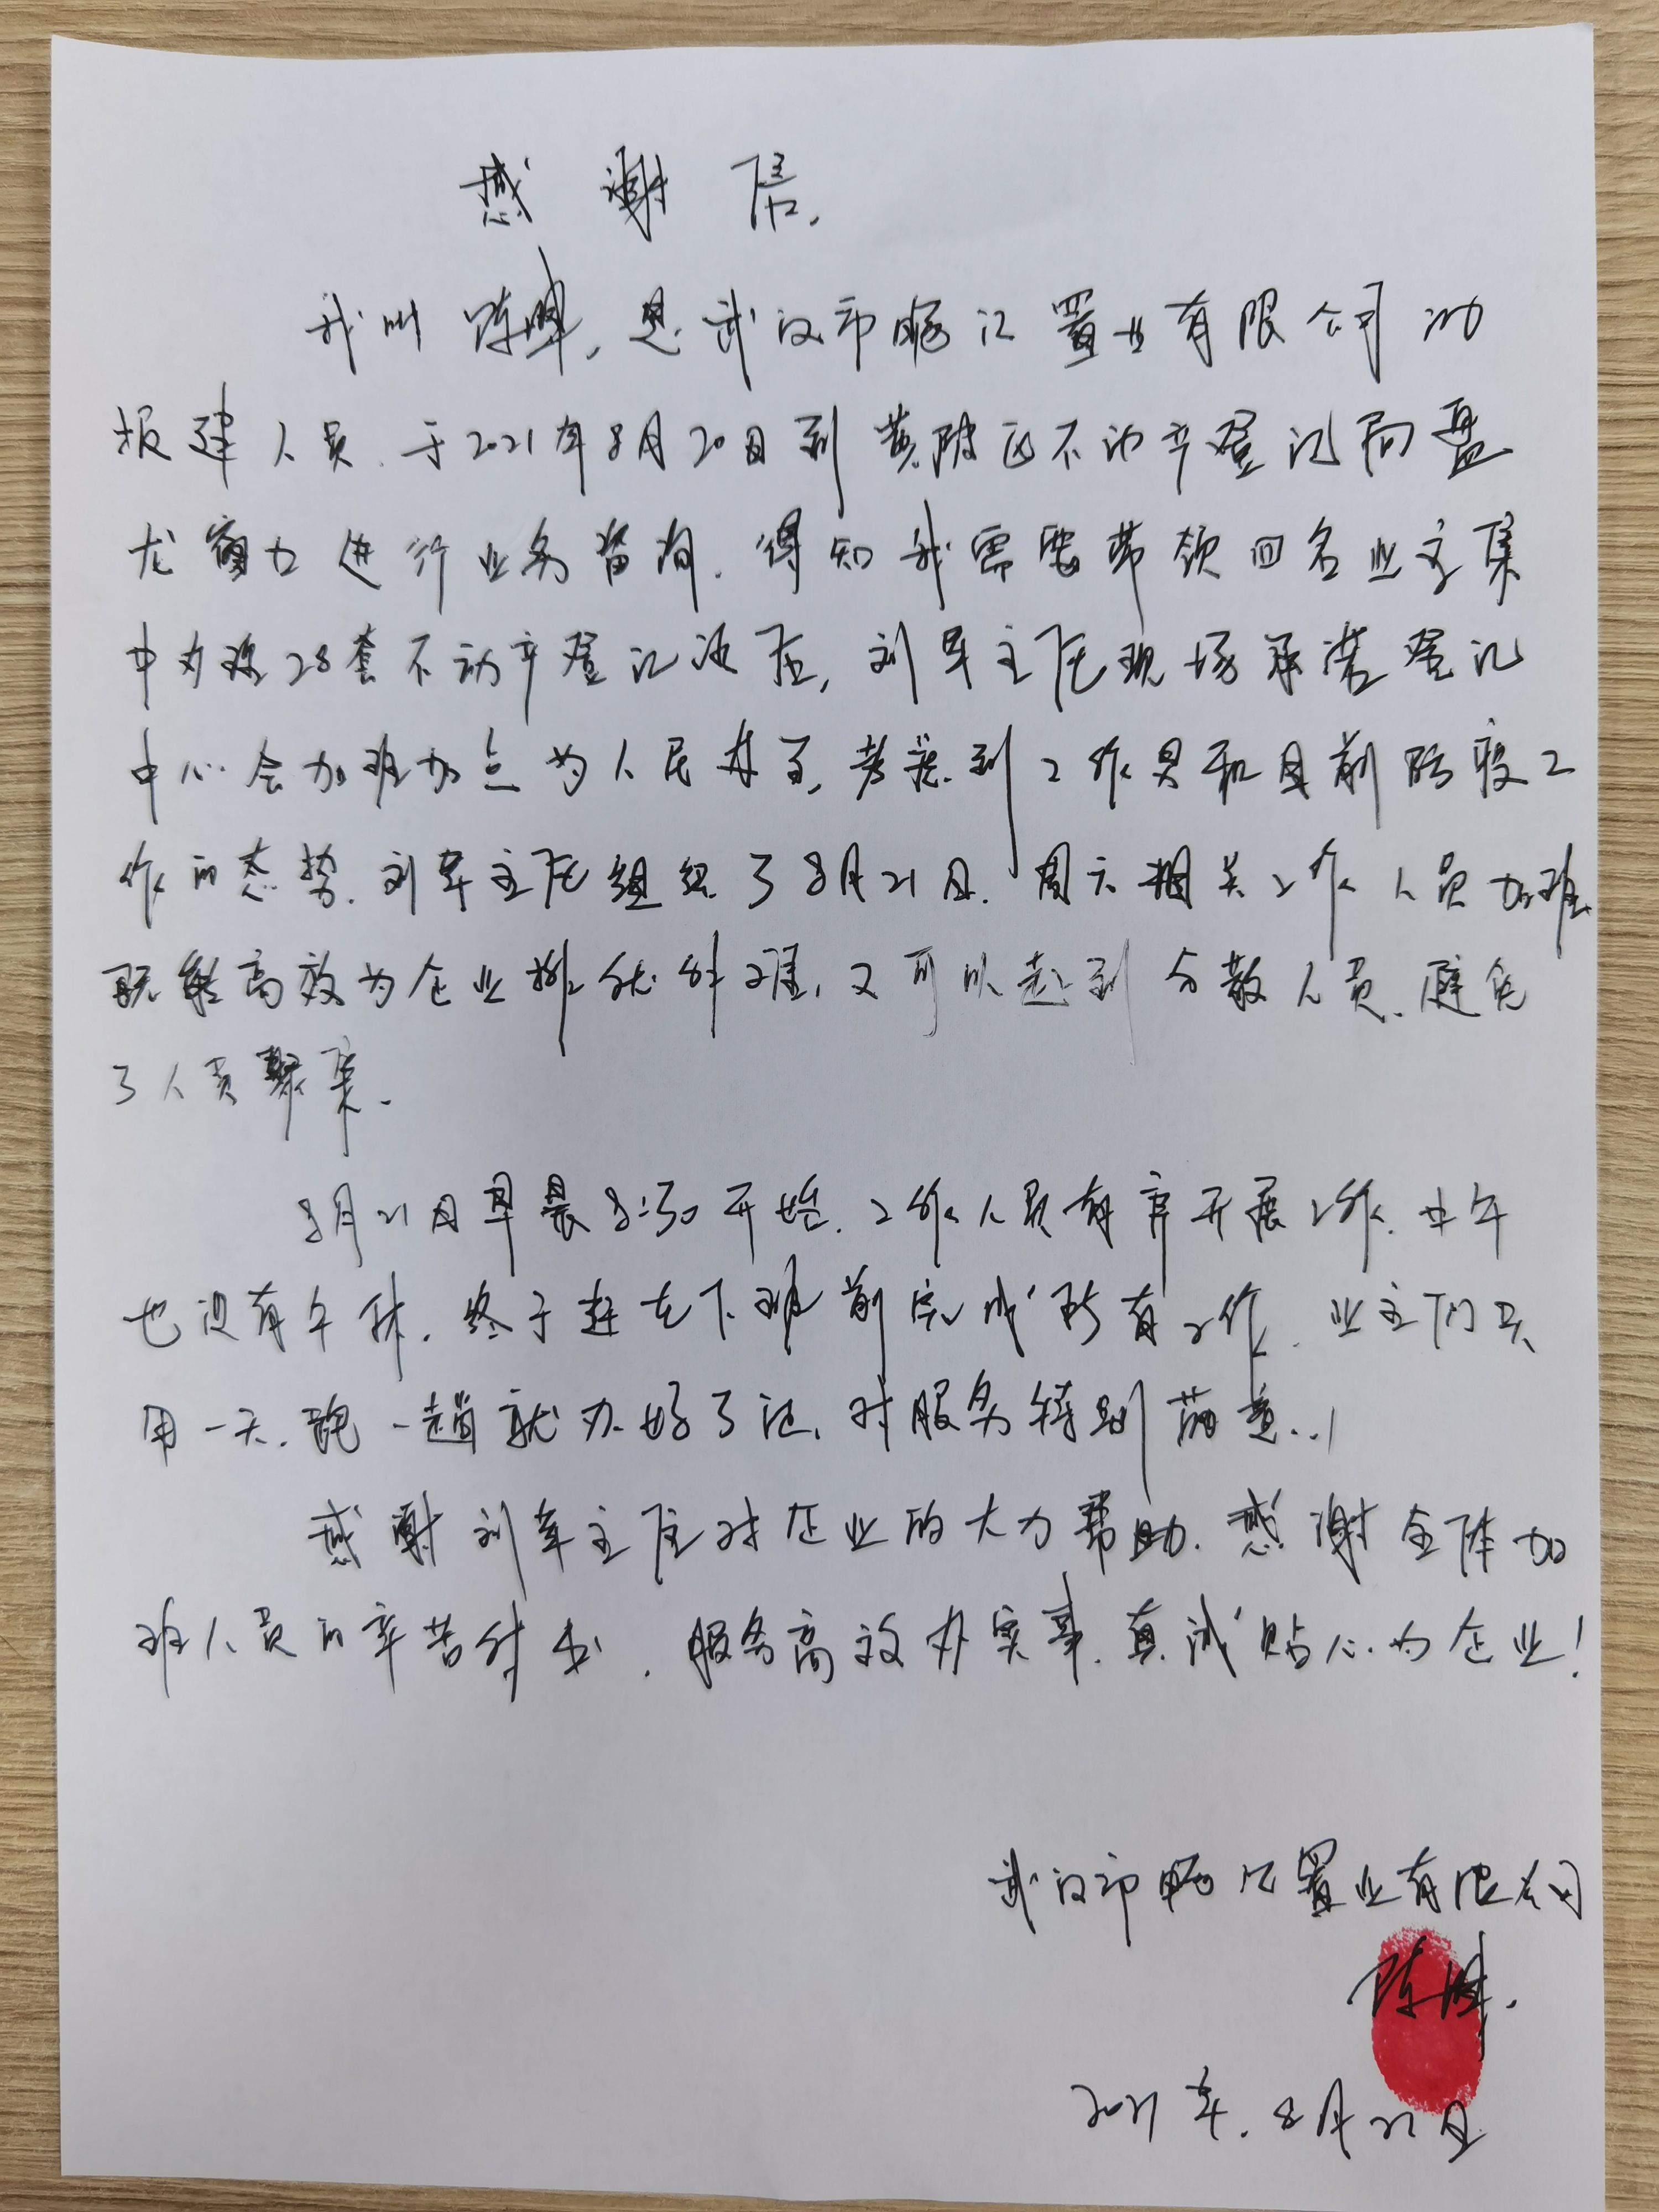 感谢信.
我叫陈晔,是武汉市畅汇置业有限公司的
报建人员.于2021年8月20日到黄陂区不动产登记局盘
龙窗口进行业务咨询.得知我需要带领四名业主集
中办理28套不动产登记证后,刘军主任现场承诺登记
中心会加班加点为人民办事,考虑到工作日和目前防疫工
作的态势.刘军主任组织了8月21日.周六相关工作人员加班
既能高效为企业排忧解难,又可以起到分散人员.避免
了人员聚集.
8月21日早晨8:30开始.工作人员有序开展工作.中午
也没有午休.终于赶在下班前完成所有工作.业主们只
用一天.跑一趟就办好了证,对服务特别满意..!
感谢刘军主任对企业的大力帮助.感谢全体加
班人员的辛苦付出.服务高效办实事.真诚贴心为企业!
武汉市畅汇置业有限公司
陈晔.
2021年.8月21日